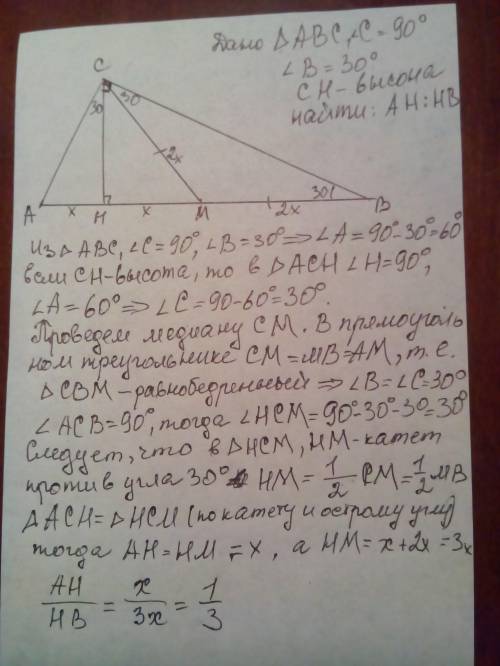 Дано △ABC, ∠C = 90°
∠B = 30°
CH - высона
найти: AH:HB
C
30
30
2x
30
A
x
H
x
M
2x
B
Из △ABC, ∠C = 90°, ∠B = 30° ⇒ ∠A = 90° - 30° = 60°
если CH - высота, то в △ACH ∠H = 90°,
∠A = 60° ⇒ ∠C = 90 - 60° = 30°.
Проведем медиану CM. В прямоуголь
ном треугольнике CM = MB = AM, т.е.
△CBM - равнобедренный ⇒ ∠B = ∠C = 30°
∠ACB = 90°, тогда ∠HCM = 90° - 30° - 30° = 30°
Следует, что в △HCM, HM - катет
против угла 30° HM = 1/2 CM = 1/2 MB
△ACH = △HCM (по катету и острому углу)
тогда AH = HM = x, а HM = x + 2x = 3x
AH/HB = x/3x = 1/3